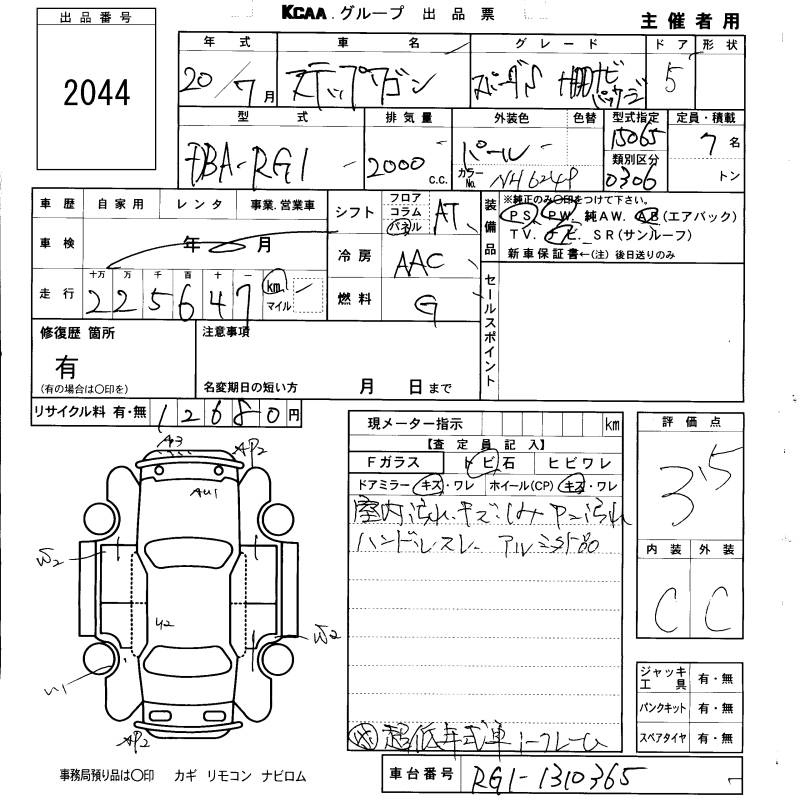 KCAA.グループ 出品票
主催者用
出品番号
2044
年式 車名 グレード ドア 形状
20/7月 ステップワゴン 5
型式 排気量 外装色 色替 型式指定 定員・積載
DBA-RG1 2000 c.c. パール 15065 7名
カラーNo. NH624P 類別区分 0306 トン
車歴 自家用 レンタ 事業.営業車
シフト フロア コラム パネル AT
装備品 ※純正のみ○印をつけて下さい。
PS. PW. 純AW. AB(エアバック)
TV. ナビ. SR(サンルーフ)
新車保証書←(注) 後日送りのみ
車検 年 月
冷房 AAC
走行 十万 万 千 百 十 一 km マイル
225647
燃料 G
セールスポイント
修復歴 箇所
有
(有の場合は○印を)
注意事項
名変期日の短い方 月 日まで
リサイクル料 有・無 12680円
現メーター指示 km
【査定員記入】
Fガラス トビ石 ヒビワレ
ドアミラー キズ・ワレ ホイール(CP) キズ・ワレ
室内汚れ.キズ.しみ 汚れ
ハンドルスレ アルミ
超低年式車
評価点
3.5
内装 外装
C C
ジャッキ工具 有・無
パンクキット 有・無
スペアタイヤ 有・無
A3
AP2
AU1
W2
U2
W2
AP2
事務局預り品は○印 カギ リモコン ナビロム
車台番号 RG1-1310365